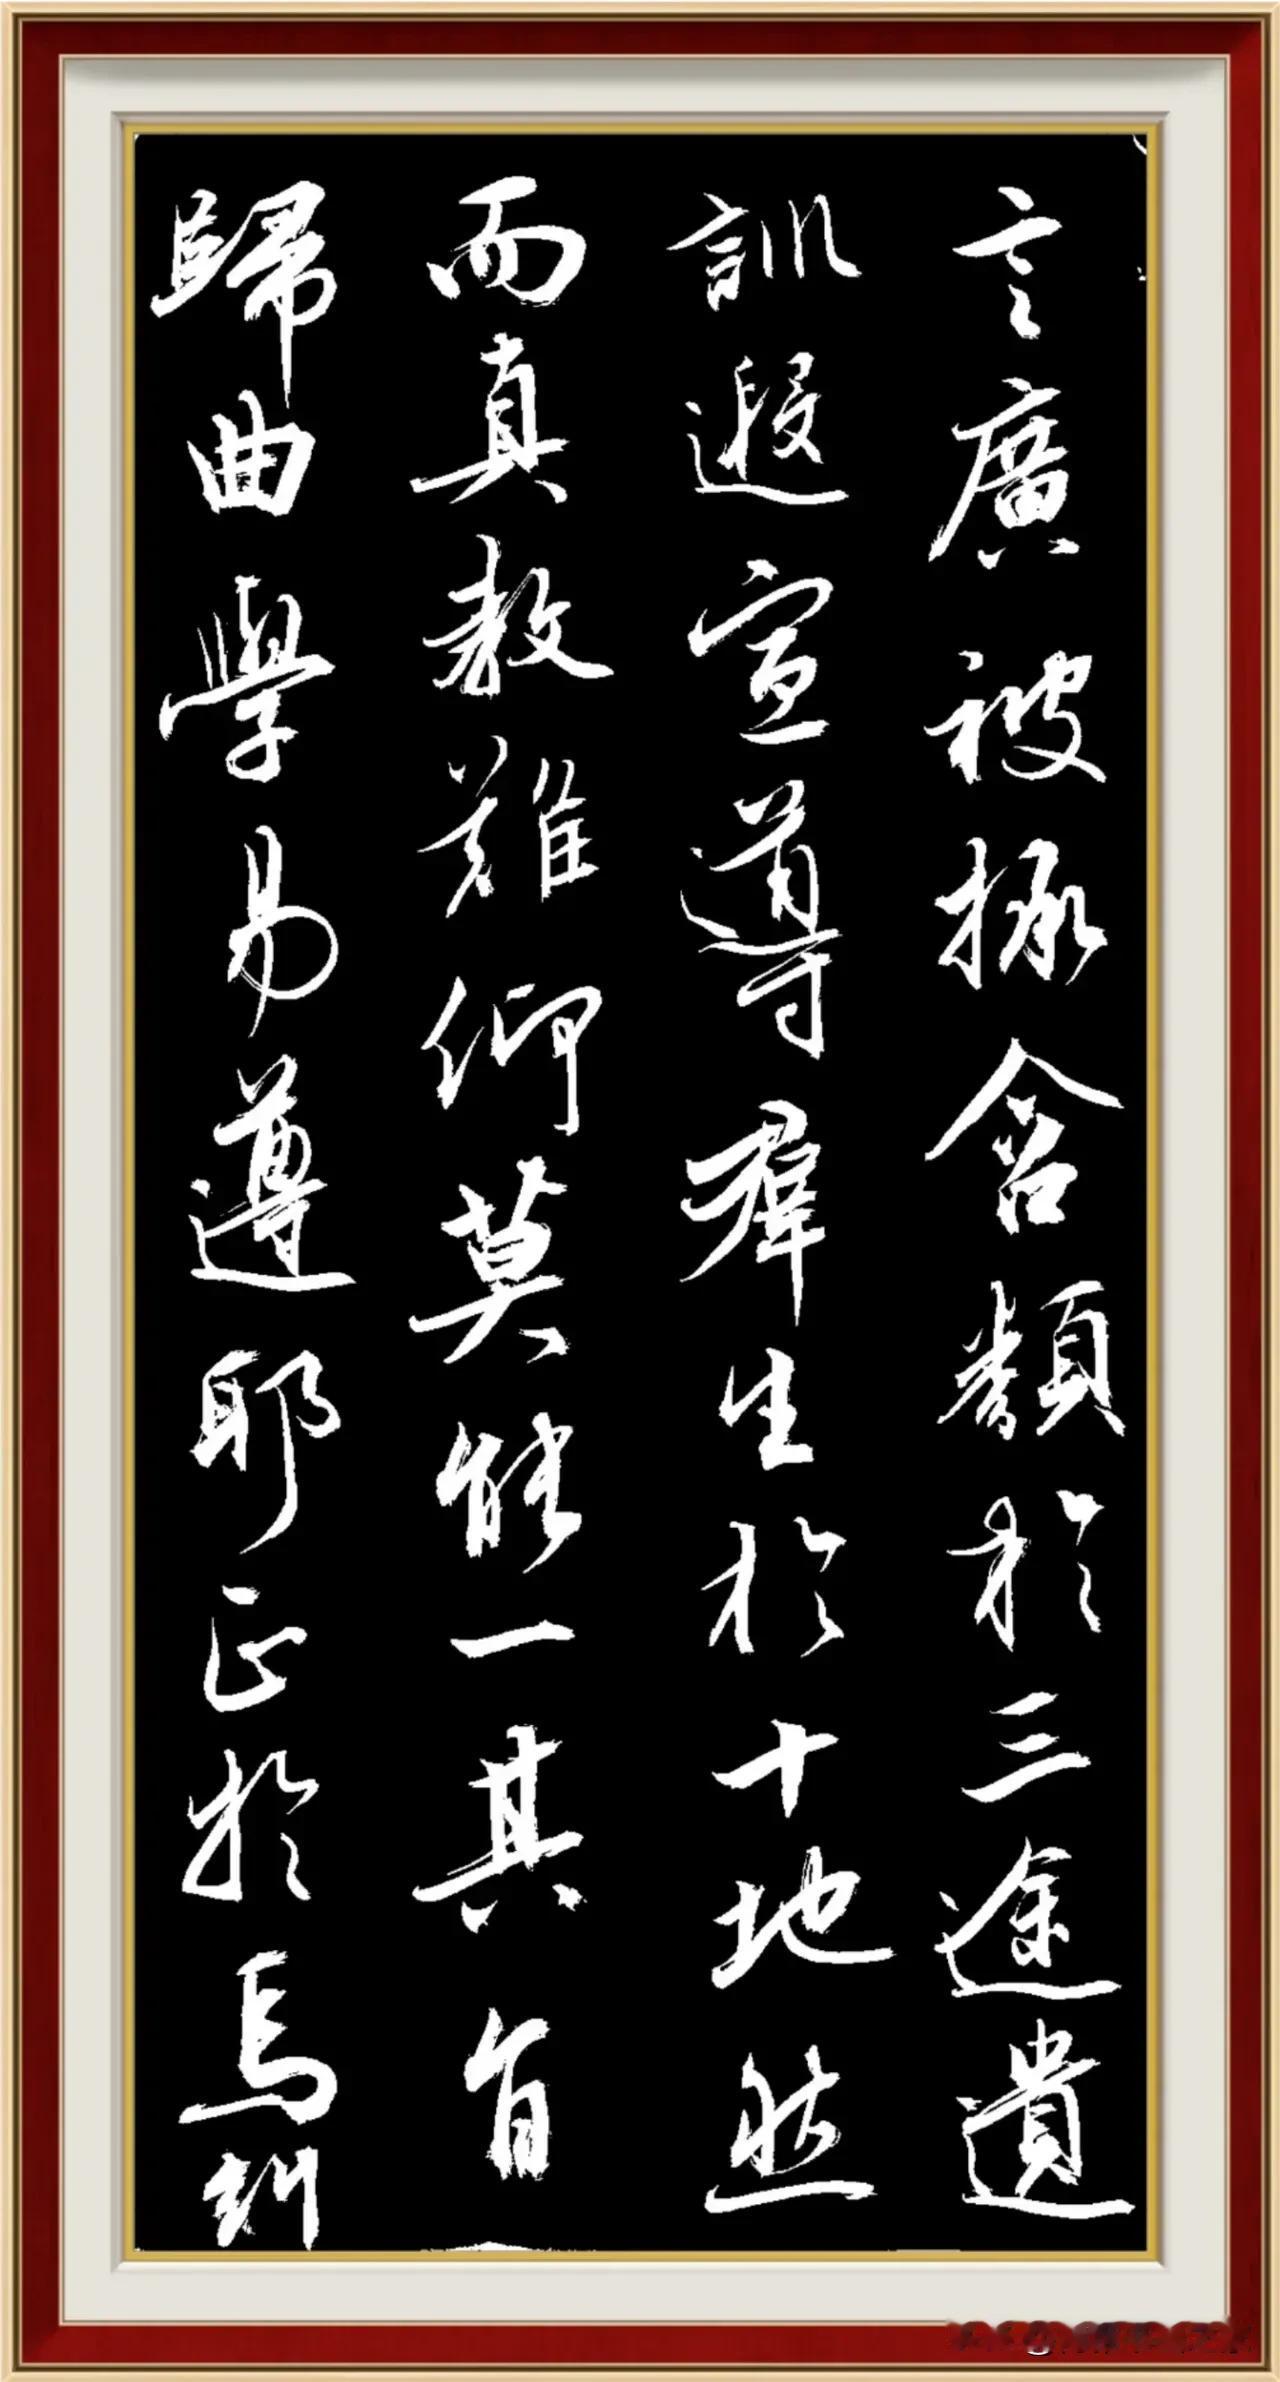 言廣被拯含類於三途遺
訓遐宣導群生於十地然
而真教難仰莫能一其旨
歸曲學易遵耶正於焉